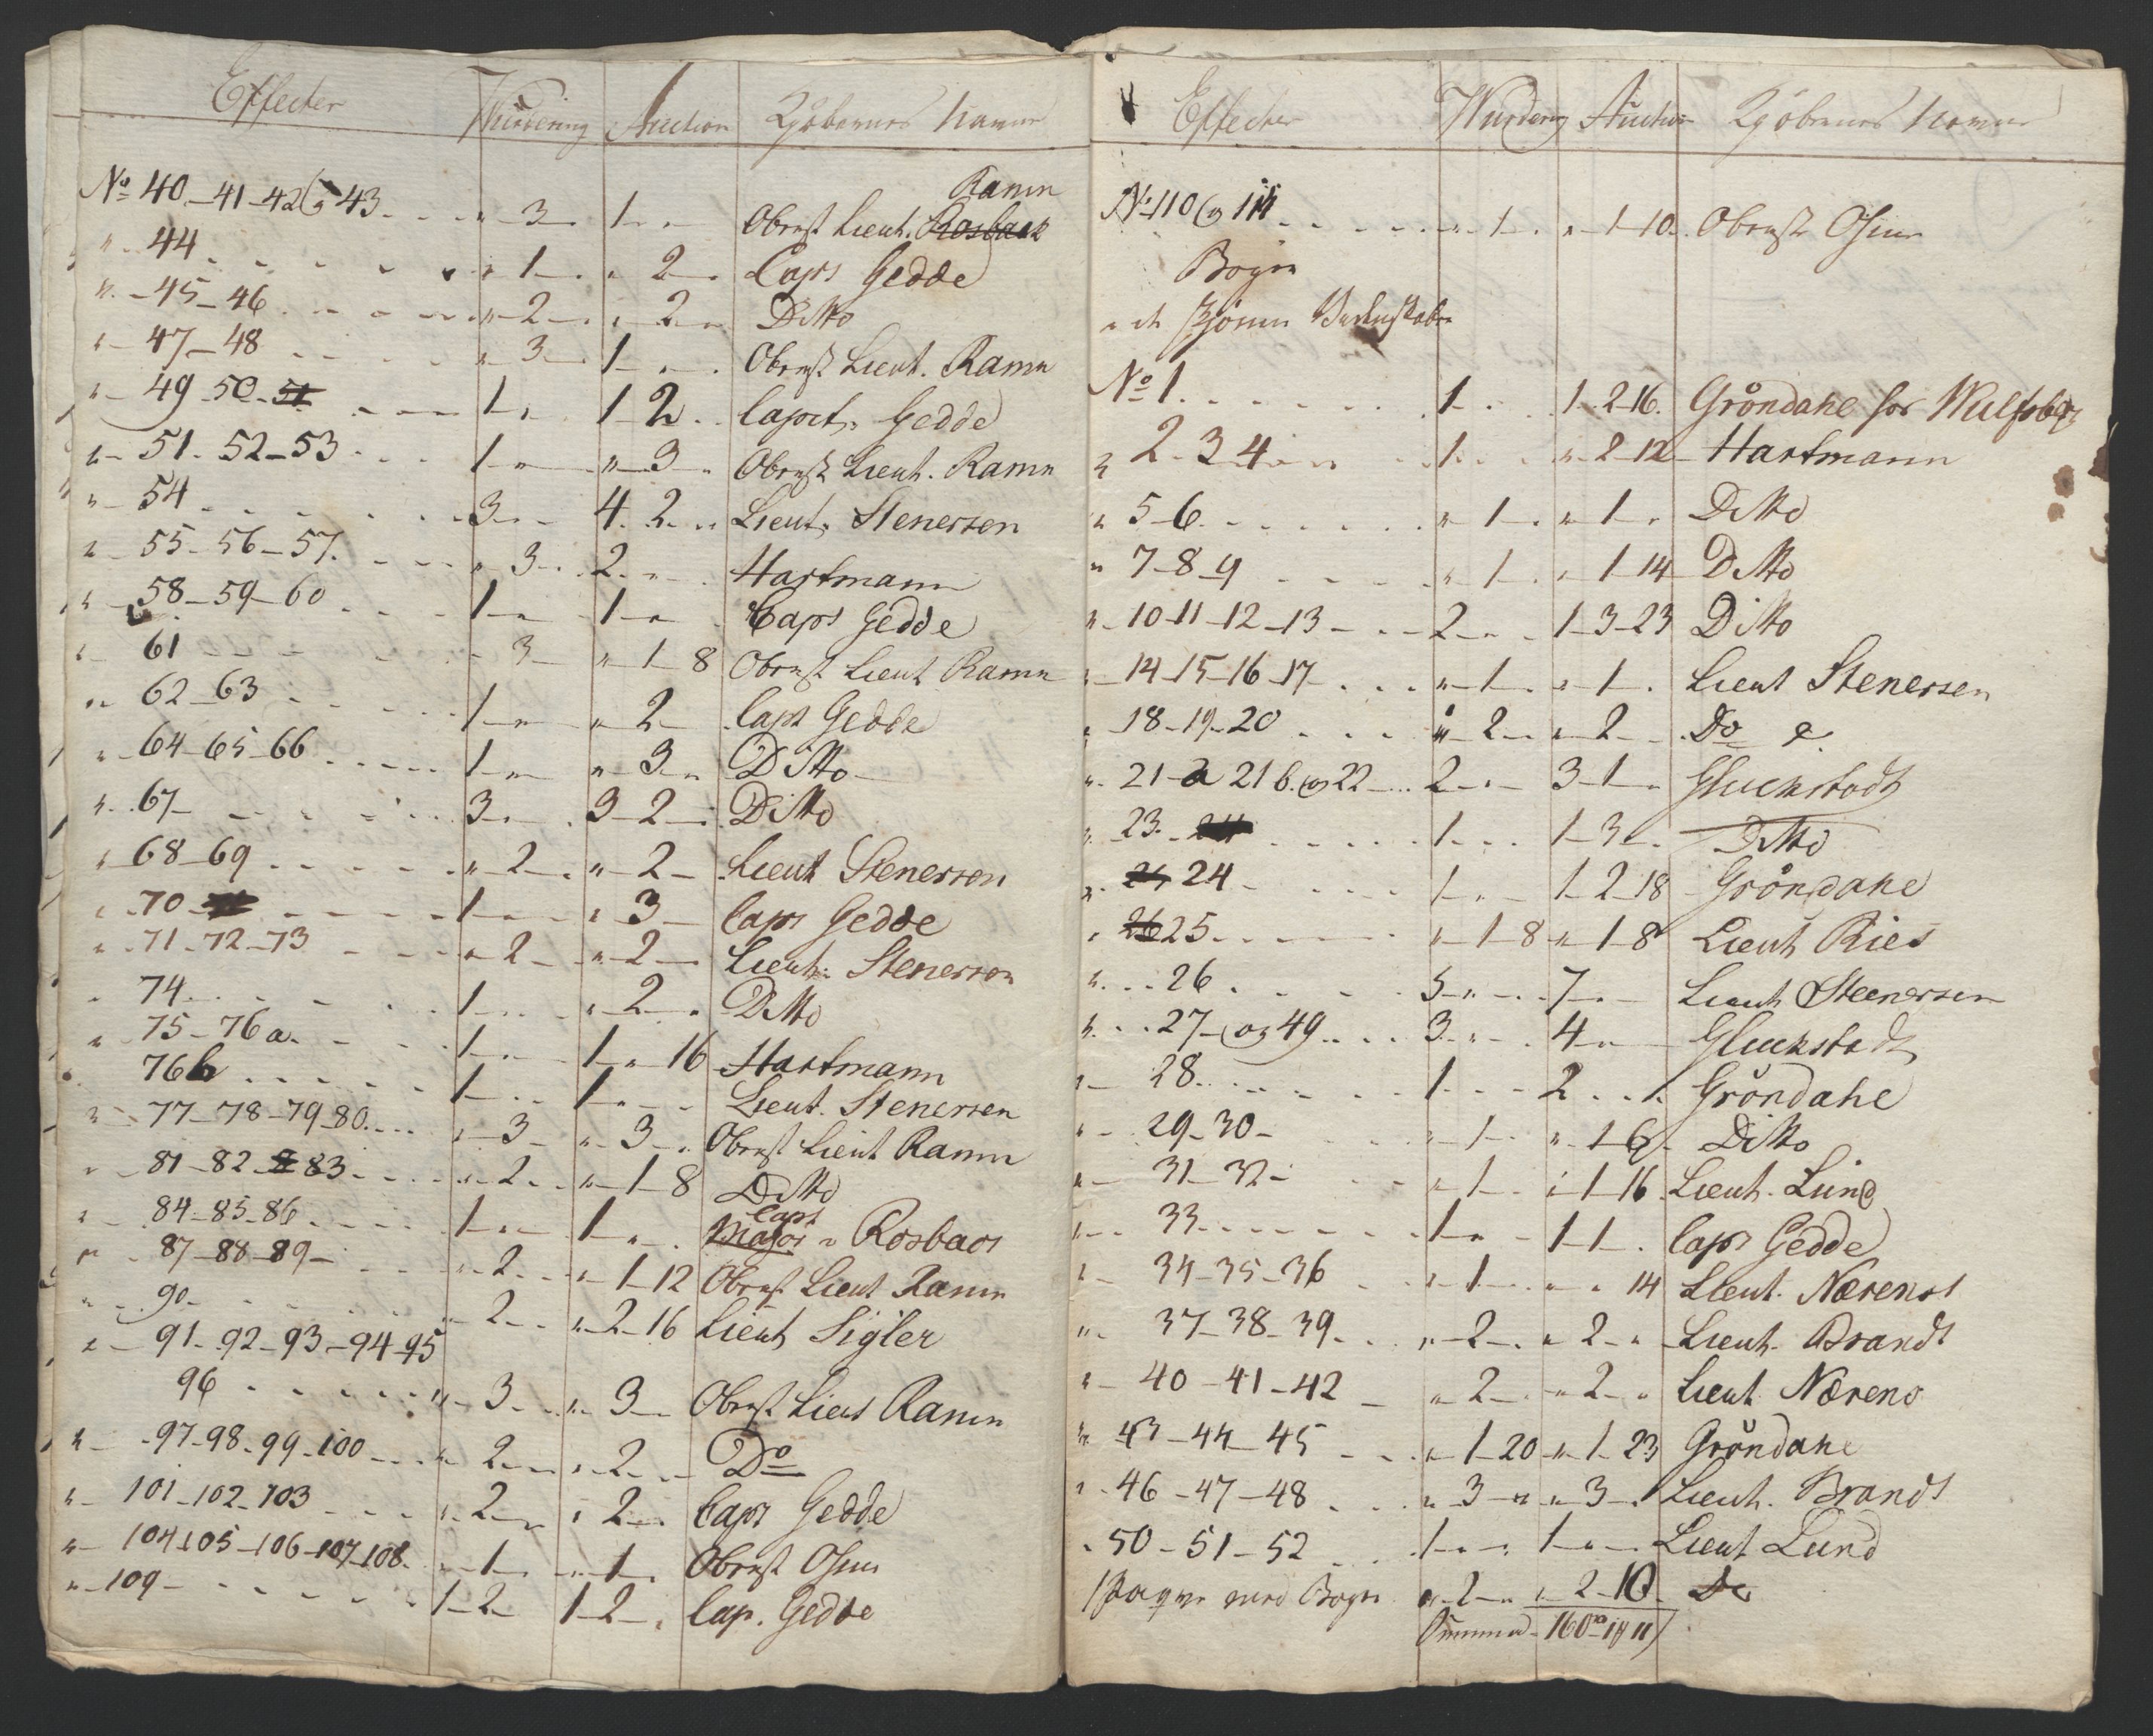 Effecter Wurdering Auction Kjöbernes Navne
Ramm
No 40-41-42 og 43 " 3 1 " Obrst Lieut. Rosbach
" 44 " 1 " 2 Capt Gedde
" 45-46 " 2 " 2 Ditto
" 47-48 " 3 1 " Obrst Lieut. Ramm
" 49-50-51 1 " 1 2 Capit. Gedde
" 51-52-53 1 " " 3 " Obrst Lieut. Ramm
" 54 3 4 2 Lieut: Stenersen
" 55-56-57 " 3 2 " Hartmann
" 58-59-60 1 " 1 " Capt Gedde
" 61 " 3 " 1-8 Obrst Lieut Ramm
" 62-63 1 " " 2 Capt Gedde
" 64-65-66 1 " " 3 " Ditto
" 67 3 3-2 Ditto
" 68-69 " 2 " 2 Lieut Stenersen
" 70 1 " 3 Capt Gedde
" 71-72-73 " 2 " 2 Lieut: Stenersen
" 74 1 " 2 " Ditto
" 75-76 a. 1 " 1 " 16 Hartmann
76 b 1 1 " Lieut. Stenersen
" 77-78-79-80 " 3 " 3 " Obrst Lieut Ramm
" 81-82-83 " 2 " 1-8 Ditto
Capt
" 84-85-86 1 " 1 " Major v Rosbach
" 87-88-89 " 2 " 1-12 Obrst Lieut Ramm
" 90 " 2 " 2-16 Lieut Sigler
" 91-92-93-94-95
96 " 3 " 3 Obrst Lieut Ramm
" 97-98-99-100 " 2 " 2 Do
" 101-102-103 " 2 " 2 Capt Gedde
" 104-105-106-107-108 " 1 " 1 Obrst
" 109 1-2 1-2 " Cap. Gedde
Effecter Wurdering Auction Kjöbernes Navne
No 110 og 111 " 1 " 1-10 Obrst
Bøger
No 1 1 1-2-16 Gröndahl for Wulfsberg
" 2-3 4 1 " 2-12 Hartmann
" 5-6 " 1 " 1 " Ditto
" 7-8-9 " 1 " 1-14 Ditto
" 10-11-12-13 2 " 1-3-23 Ditto
" 14-15-16-17 " 1 " 1 Lieut Stenersen
" 18-19-20 " 2 " 2 Do
" 21-a 21 b. og 22 2 " 3-1 " Gluckstadt
" 23 1 1-3 Ditto
" 24 1 " 1-2-18 Gröndahl
" 26 25 " 1-8 " 1-8 Lieut Ries
" 26 5 " 7 " Lieut Steenersen
" 27 og 49 3 " 4 " Gluckstadt
" 28 1 2 Gröndahl
" 29-30 " 1 " 1-6 Ditto
" 31-32 " 1 " 1-16 Lieut. Lund
" 33 1 " 1-1 Capt Gedde
" 34-35-36 " 1 " " 14 Lieut.
" 37-38-39 " 2 " 2 " Lieut. Brandt
" 40-41-42 " 2 " 2 " Lieut
" 43-44-45 " 1-20 " 1-23 Gröndahl
" 46-47-48 " 3 " " 3 Lieut. Brandt
" 50-51-52 1 " 1 " Lieut Lund
1 med Bøger " 2 " " 2-10 Do
Summa